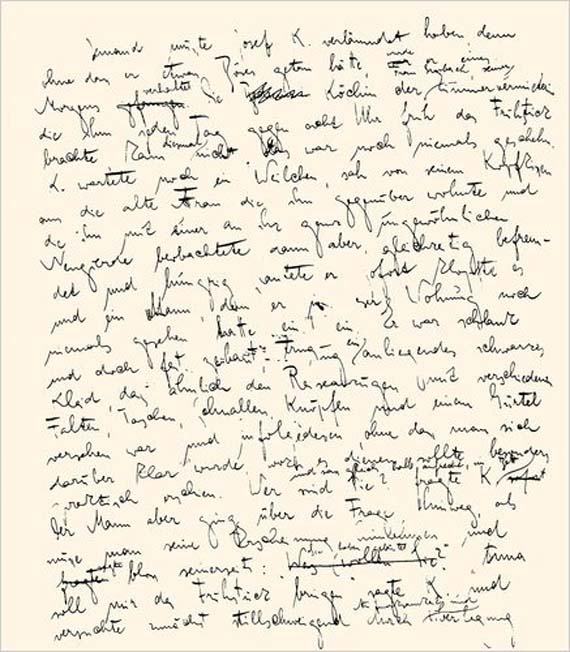 Jemand musste Josef K. verläumdet haben denn
ohne dass er etwas Böses getan hätte, wurde er eines
Morgens verhaftet. Die Köchin der Zimmervermieterin
Frau Grubach, seiner
die ihm jeden Tag gegen acht Uhr früh das Frühstück
brachte kam diesmal nicht. Das war noch niemals geschehn.
K. wartete noch ein Weilchen, sah von seinem Kopfkissen
aus die alte Frau die ihm gegenüber wohnte und
die ihn mit einer an ihr ganz ungewöhnlichen
Neugierde beobachtete dann aber, gleichzeitig befrem-
det und hungrig, läutete er. Sofort klopfte es
und ein Mann, den er in dieser Wohnung noch
niemals gesehen hatte trat ein. Er war schlank
und doch fest gebaut, er trug ein anliegendes schwarzes
Kleid, das ähnlich den Reiseanzügen mit verschiedenen
Falten, Taschen, Schnallen, Knöpfen und einem Gürtel
versehen war und infolgedessen, ohne dass man sich
darüber klar wurde, wozu es dienen sollte, besonders
praktisch erschien. Wer sind Sie? fragte K.
Der Mann aber ging über die Frage hinweg, als
müsse man seine Erscheinung hinnehmen und
sagte bloss seinerseits: Sie haben geläutet? Anna
soll mir das Frühstück bringen sagte K. und
versuchte zunächst stillschweigend durch